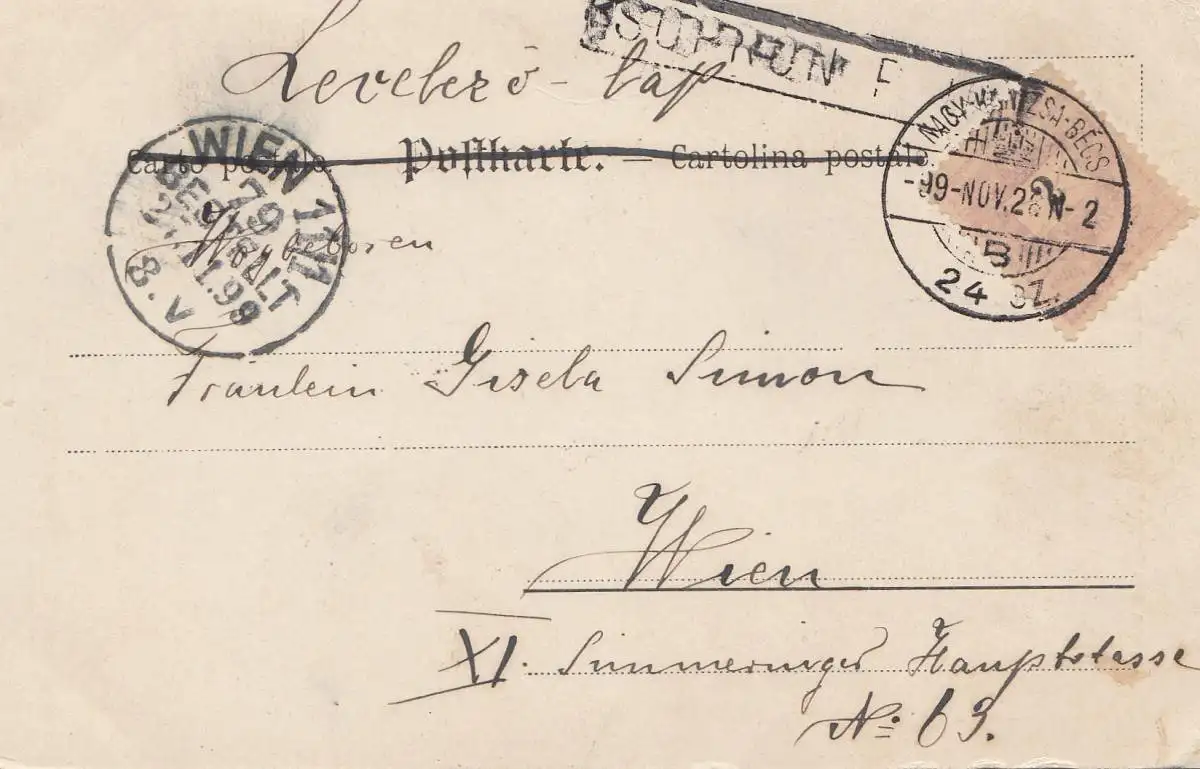 SOPRON P
Levelező-lap
Carte postale. — Postkarte. — Cartolina postale
WIEN 1 11/1
79
BESTELLT
27.11.99
8.V
NAGY-KANIZSA-BÉCS
-99-NOV.26 N-2
B
24 SZ.
Wohlgeboren
Fräulein Gisela Simon
Wien
XI. Simmeringer Hauptstasse
No: 63.